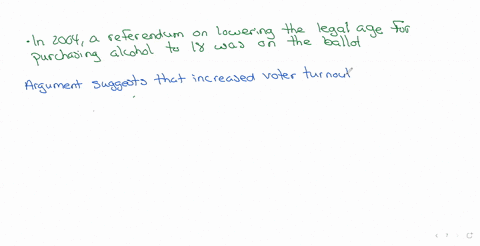 ·In 2004, a referendum on lowering the legal age for
purchasing alcohol to 18 was on the ballot
Argument suggests that increased voter turnout